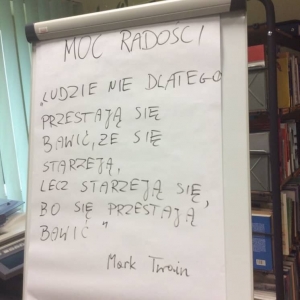 MOC RADOŚCI
"LUDZIE NIE DLATEGO
PRZESTAJĄ SIĘ
BAWIĆ, ŻE SIĘ
STARZEJĄ,
LECZ STARZEJĄ SIĘ,
BO SIĘ PRZESTAJĄ
BAWIĆ"
Mark Twain